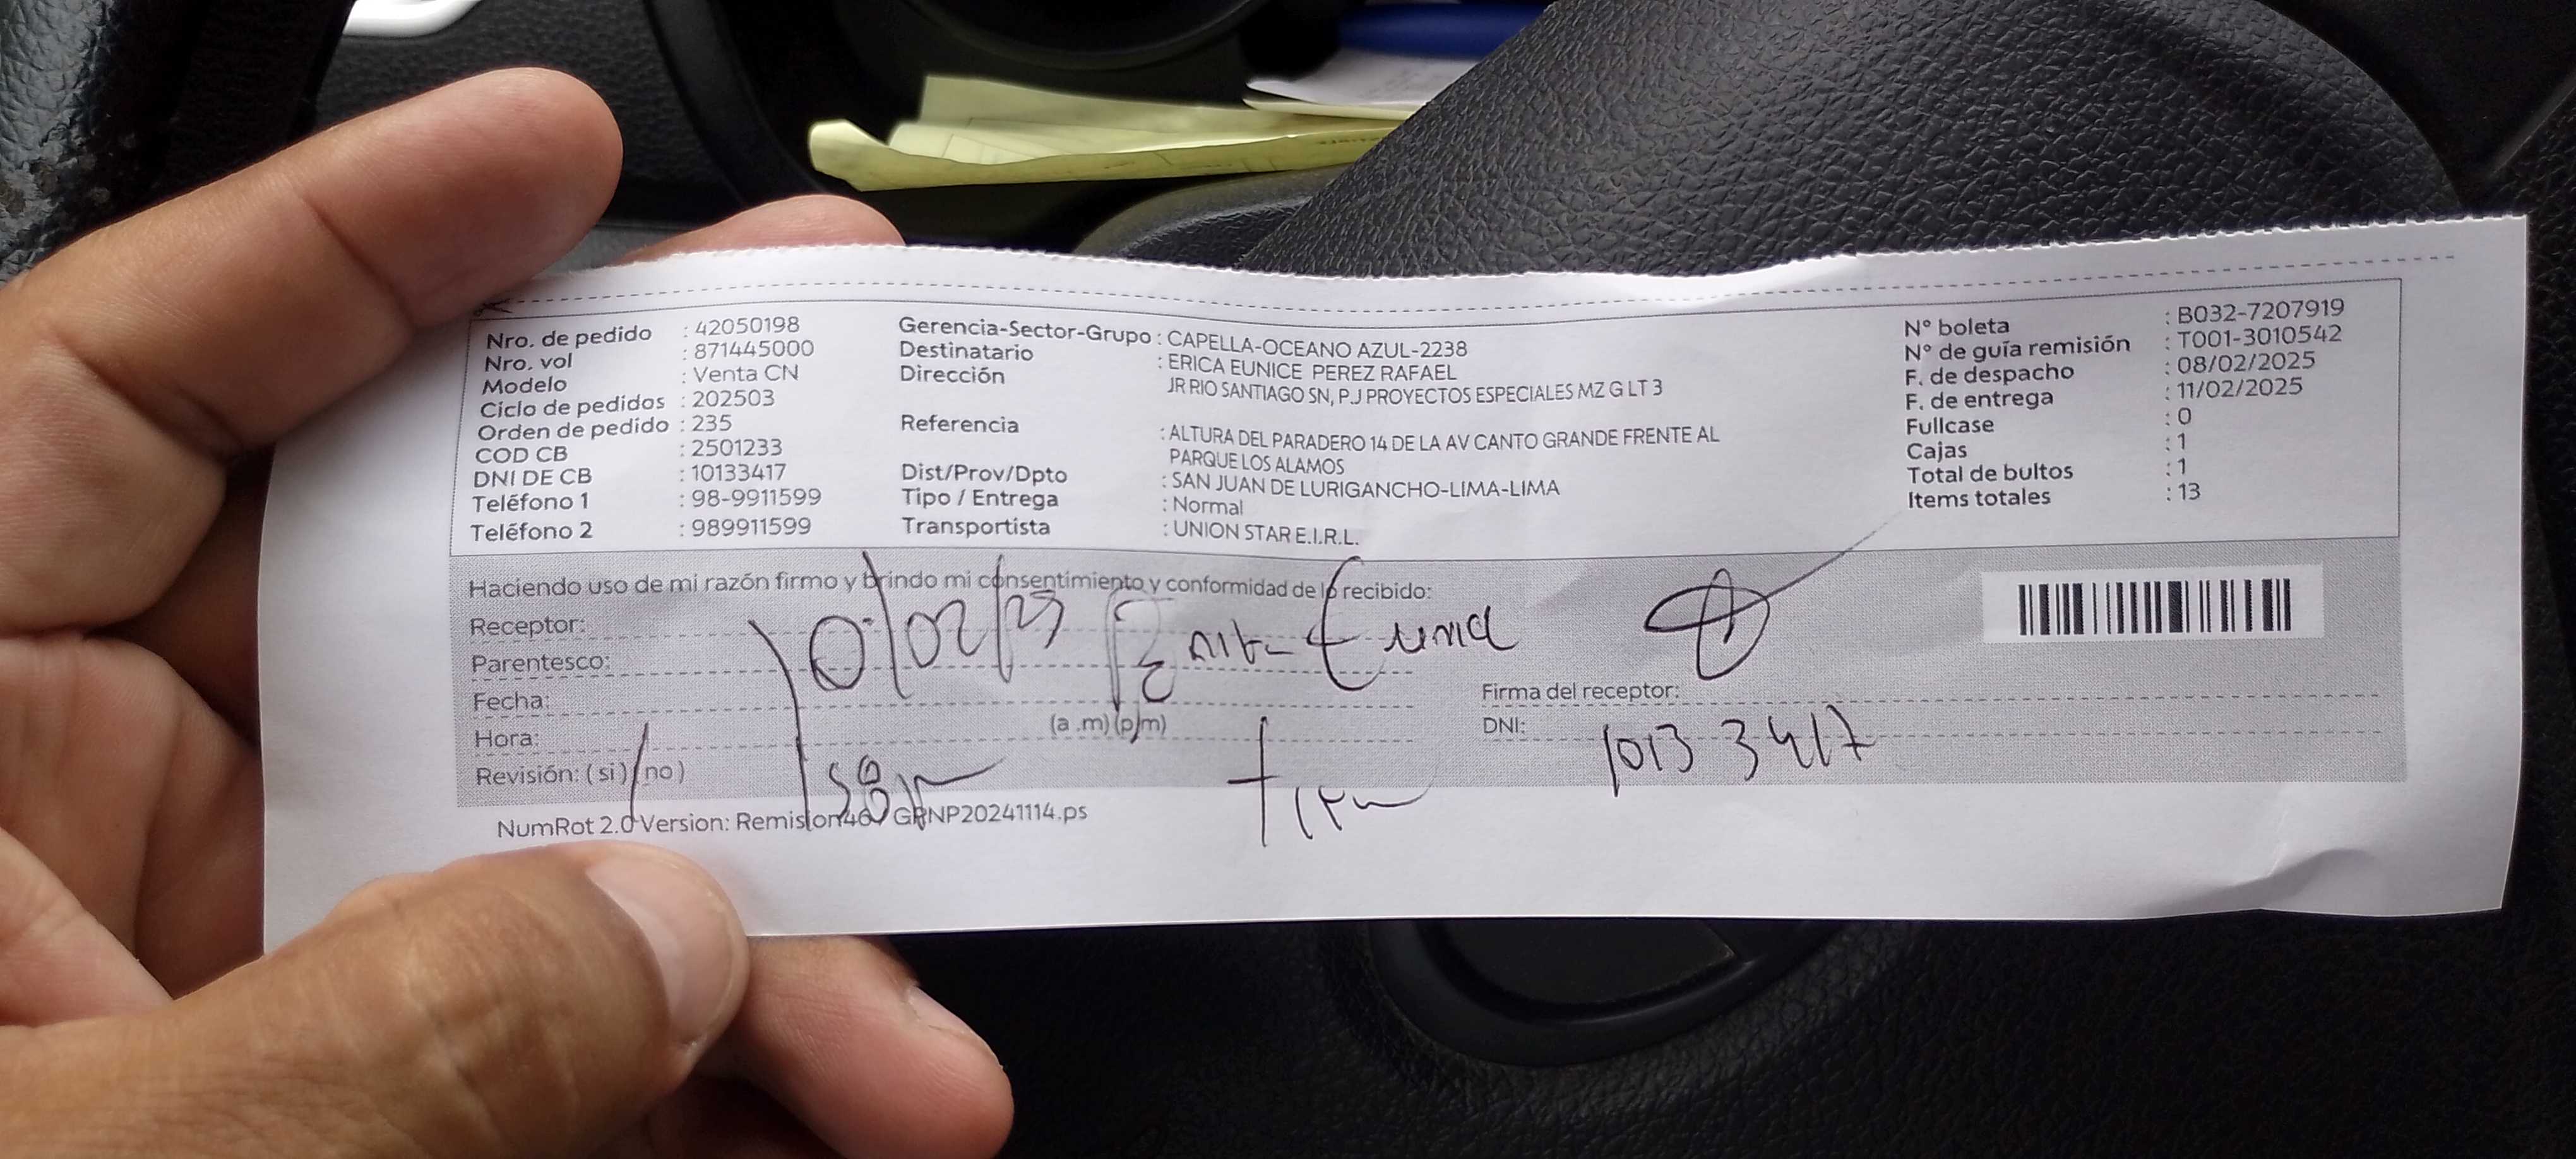 Nro. de pedido : 42050198
Nro. vol : 871445000
Modelo : Venta CN
Ciclo de pedidos : 202503
Orden de pedido : 235
COD CB : 2501233
DNI DE CB : 10133417
Teléfono 1 : 98-9911599
Teléfono 2 : 989911599
Gerencia-Sector-Grupo : CAPELLA-OCEANO AZUL-2238
Destinatario : ERICA EUNICE PEREZ RAFAEL
Dirección JR RIO SANTIAGO SN, P.J PROYECTOS ESPECIALES MZ G LT 3
Referencia : ALTURA DEL PARADERO 14 DE LA AV CANTO GRANDE FRENTE AL
PARQUE LOS ALAMOS
Dist/Prov/Dpto : SAN JUAN DE LURIGANCHO-LIMA-LIMA
Tipo / Entrega : Normal
Transportista : UNION STAR E.I.R.L.
N° boleta : B032-7207919
N° de guía remisión : T001-3010542
F. de despacho : 08/02/2025
F. de entrega : 11/02/2025
Fullcase : 0
Cajas : 1
Total de bultos : 1
Items totales : 13
Haciendo uso de mi razón firmo y brindo mi consentimiento y conformidad de lo recibido:
Receptor:
Parentesco:
Fecha:
Hora: (a .m) (p/m)
Revisión: ( si ) ( no )
10/02/25
Firma del receptor:
DNI: 10133417
NumRot 2.0 Version: GRNP20241114.ps